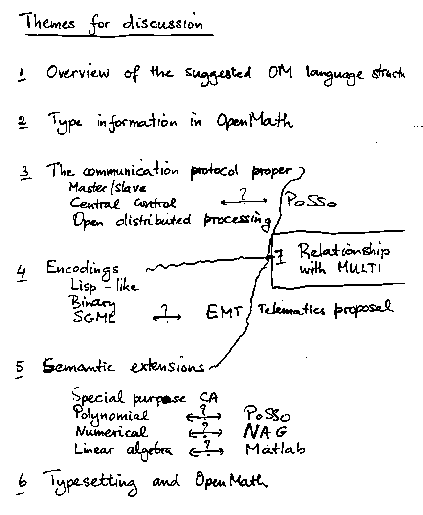 Themes for discussion
1 Overview of the suggested OM language struct
2 Type information in OpenMath
3 The communication protocol proper
Master/Slave
Central Control ↔ ? PoSSo
Open distributed processing
7 Relationship with MULTI
4 Encodings
Lisp-like
Binary
SGML ↔ ? EMT Telematics proposal
5 Semantic extensions
Special purpose CA
Polynomial ↔ ? PoSSo
Numerical ↔ ? NAG
Linear algebra ↔ ? Matlab
6 Typesetting and OpenMath